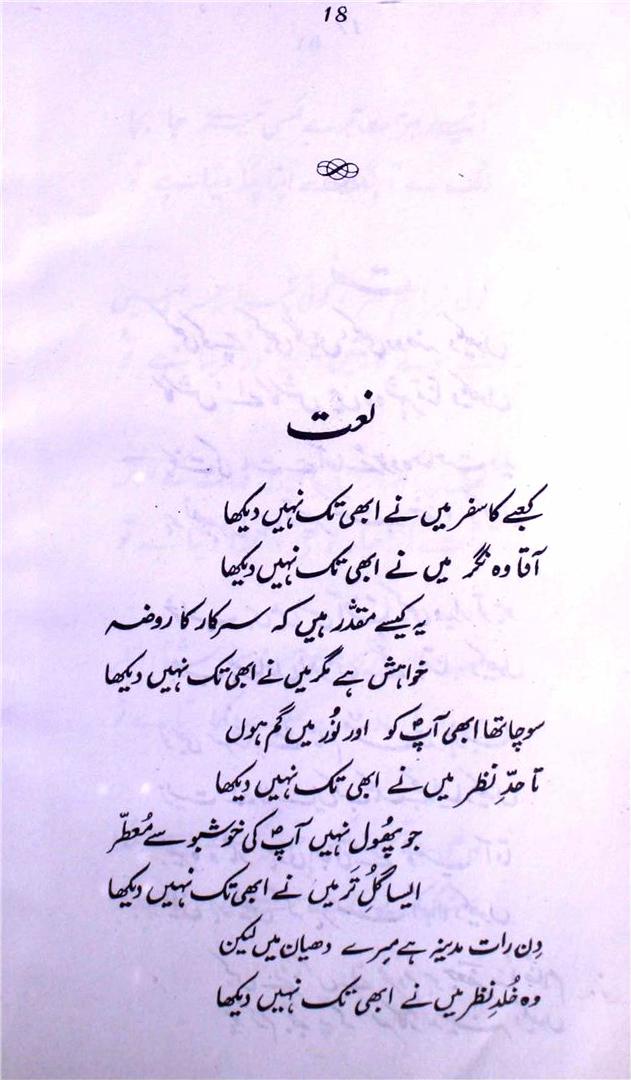 18
نعت
کعبے کا سفر میں نے ابھی تک نہیں دیکھا
آقا وہ نگر میں نے ابھی تک نہیں دیکھا
یہ کیسے مقدّر ہیں کہ سرکار کا روضہ
خواہش ہے مگر میں نے ابھی تک نہیں دیکھا
سوچا تھا ابھی آپؐ کو اور نُور میں گم ہوں
تا حدِّ نظر میں نے ابھی تک نہیں دیکھا
جو پھُول نہیں آپؐ کی خوشبو سے مُعطّر
ایسا گلِ تَر میں نے ابھی تک نہیں دیکھا
دِن رات مدینہ ہے مِرے دھیان میں لیکن
وہ خُلدِ نظر میں نے ابھی تک نہیں دیکھا